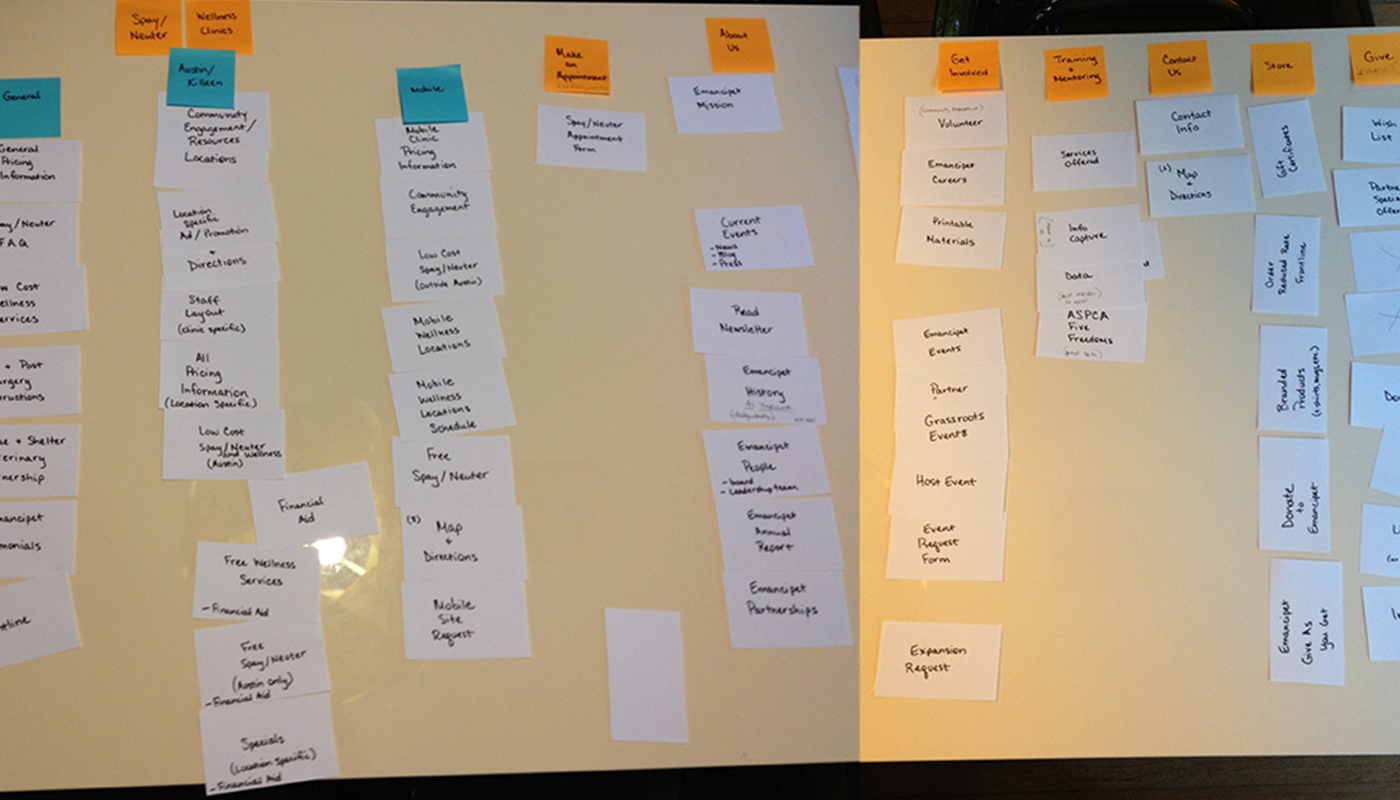 Spay/
Neuter
Wellness
Clinics
General
General
Pricing
Information
FAQ
+ Post
+ Shelter
Austin/
Killeen
Community
Engagement/
Resources
Locations
Location
Specific
Ad/Promotion
+
Directions
Staff
Layout
(clinic specific)
All
Pricing
Information
(Location Specific)
Low Cost
Spay/Neuter
and Wellness
(Austin)
Financial
Aid
Free Wellness
Services
- Financial Aid
Free
Spay/Neuter
(Austin only)
- Financial Aid
Specials
(Location Specific)
- Financial Aid
Mobile
Mobile
Clinic
Pricing
Information
Community
Engagement
Low Cost
Spay/Neuter
(outside Austin)
Mobile
Wellness
Locations
Mobile
Wellness
Locations
Schedule
Free
Spay/Neuter
Map
+
Directions
Mobile
Site
Request
Make
an
Appointment
Spay/Neuter
Appointment
Form
About
Us
Emancipet
Mission
Current
Events
- News
- Blog
- Press
Read
Newsletter
Emancipet
History
Emancipet
People
- board
- Leadership team
Emancipet
Annual
Report
Emancipet
Partnerships
Get
Involved
Volunteer
Emancipet
Careers
Printable
Materials
Emancipet
Events
Partner
Grassroots
Events
Host Event
Event
Request
Form
Expansion
Request
Training
+
Mentoring
Services
Offered
Info
Capture
Data
ASPCA
Five
Freedoms
Contact
Us
Contact
Info
(2) Map
+
Directions
Store
Gift
Certificates
Order
Reduced Rate
Frontline
Branded
Products
(t-shirts, mugs, etc.)
Donate
to
Emancipet
Emancipet
Give As
You Get
Give
Wish
List